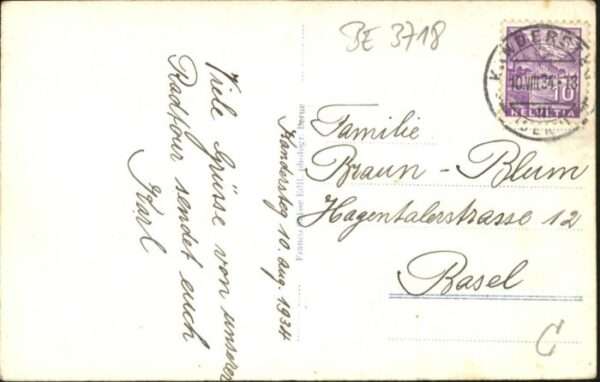 BE 3718
KANDERSTEG
10.VIII.34.-18
10
HELVETIA
Familie
Braun - Blum
Hagentalerstrasse 12
Basel
C
Kandersteg 10. Aug. 1934
Viele Grüsse von unserer
Radtour sendet euch
Karl
Edit. photogr. Berne